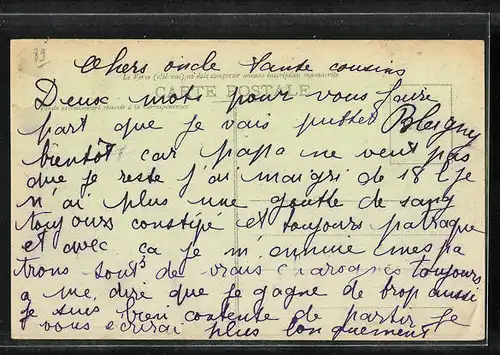 89
Chers oncle tante cousins
CARTE POSTALE
Deux mots pour vous faire
part que je vais quitter Bleigny
bientôt car papa ne veut pas
que je reste j'ai maigri de 18 l je
n'ai plus une goutte de sang
toujours constipé et toujours patraque
et avec ça je m'ennuie mes pa
trons sont de vrais charognes toujours
a me dire que je gagne de trop aussi
je suis bien contente de partir je
vous ecrirai plus longuement